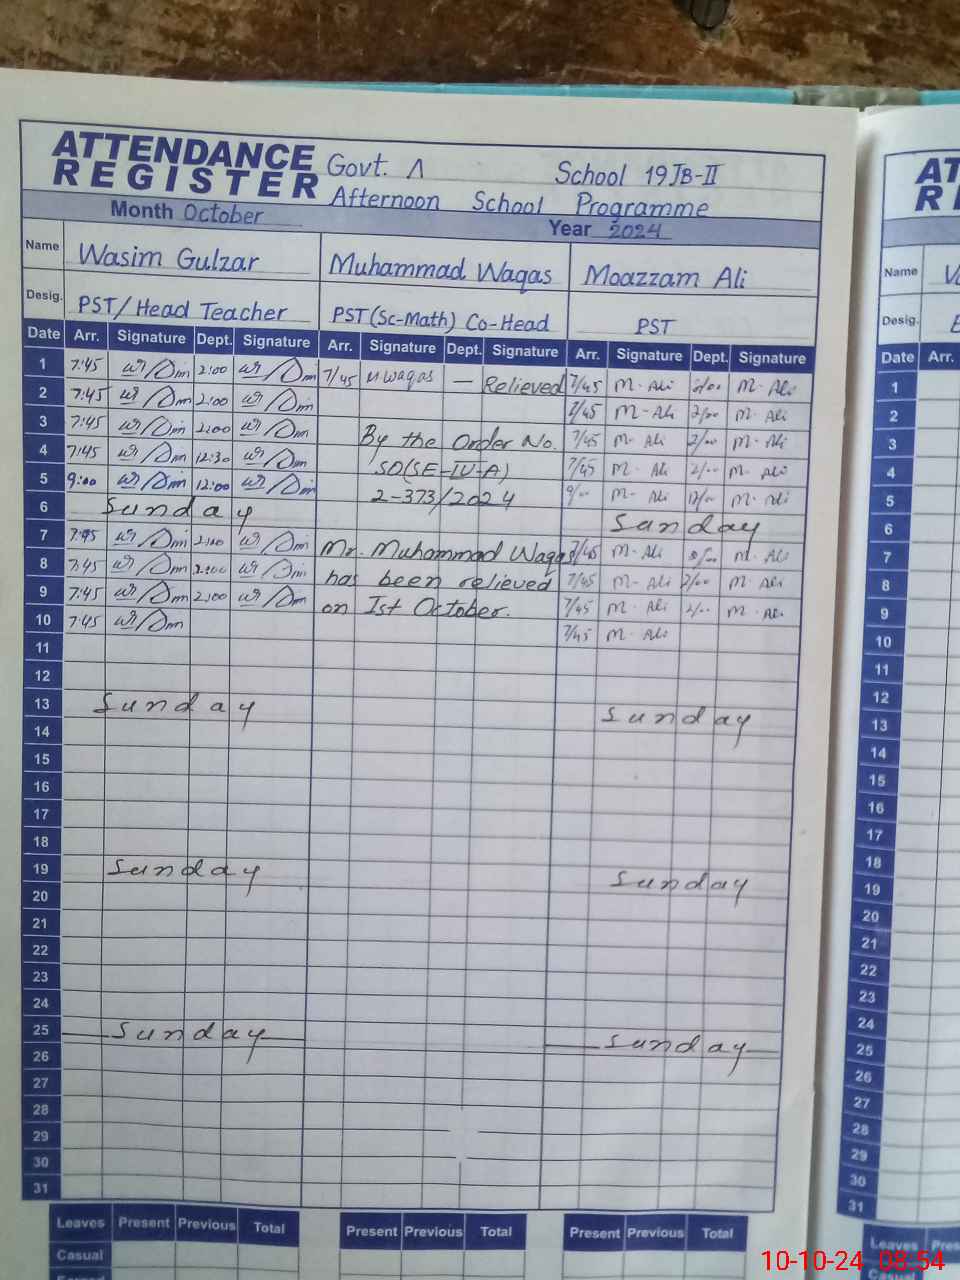 ATTENDANCE
REGISTER
Govt. Λ School 19JB-II
Afternoon School Programme
Month October
Year 2024
Name Wasim Gulzar Muhammad Waqas Moazzam Ali
Desig. PST/Head Teacher PST(Sc-Math) Co-Head PST
Date Arr. Signature Dept. Signature Arr. Signature Dept. Signature Arr. Signature Dept. Signature
1 7:45 2:00 7/45 M Waqas — Relieved 7/45 M. Ali 2/00 M. Ali
2 7:45 2:00 7/45 M. Ali 2/00 M. Ali
3 7:45 2:00 By the Order No. 7/45 M. Ali 2/00 M. Ali
4 7:45 12:30 SO(SE-IV-A) 7/45 M. Ali 2/00 M. Ali
5 9:00 12:00 2-373/2024 9/00 M. Ali 12/00 M. Ali
6 Sunday Sunday
7 7:45 2:00 Mr. Muhammad Waqas 7/45 M. Ali M. Ali
8 7:45 2:00 has been relieved 7/45 M. Ali 2/00 M. Ali
9 7:45 2:00 on Ist October. 7/45 M. Ali 2/00 M. Ali
10 7:45 7/45 M. Ali
11
12
13 Sunday Sunday
14
15
16
17
18
19 Sunday Sunday
20
21
22
23
24
25 Sunday Sunday
26
27
28
29
30
31
Leaves Present Previous Total Present Previous Total Present Previous Total
Casual
AT
RE
Name
Desig.
Date Arr.
1
2
3
4
5
6
7
8
9
10
11
12
13
14
15
16
17
18
19
20
21
22
23
24
25
26
27
28
29
30
31
Leaves Pres
10-10-24 08:54